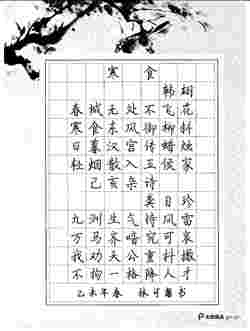 寒食
韩翃
春城无处不飞花
寒食东风御柳斜
日暮汉宫传蜡烛
轻烟散入五侯家
己亥杂诗
龚自珍
九州生气恃风雷
万马齐喑究可哀
我劝天公重抖擞
不拘一格降人才
乙未年春 书